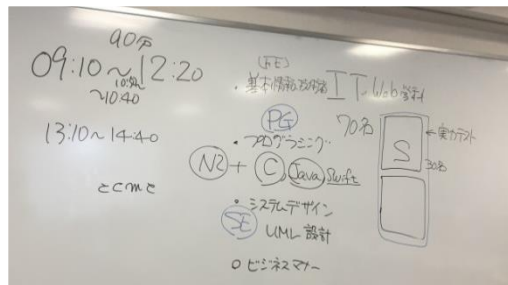 90分
09:10~12:20
~10:40
13:10~14:40
(FE)
・基本情報技術者 IT・Web学科
PG
70名
・プログラミング
N2 + C Java Swift
・システムデザイン
SE UML 設計
○ ビジネスマナー
S
←実力テスト
30名